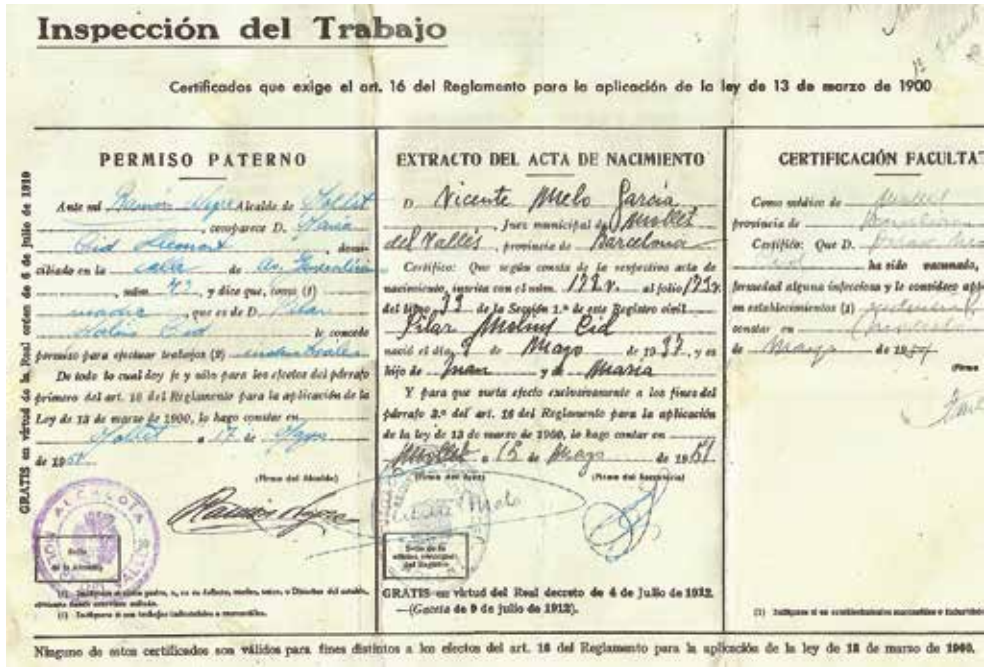 Inspección del Trabajo
Certificados que exige el art. 16 del Reglamento para la aplicación de la ley de 13 de marzo de 1900
GRATIS en virtud de la Real orden de 6 de julio de 1919
PERMISO PATERNO
Ante mí Ramón Alcalde de Mollet
, comparece D. María
Cid , domi-
ciliado en la calle de Av.
, núm. 72, y dice que, como (1)
madre, que es de D. Pilar
Molins Cid le concede
permiso para efectuar trabajos (2) industriales
De todo lo cual doy fe y sólo para los efectos del párrafo
primero del art. 16 del Reglamento para la aplicación de la
Ley de 13 de marzo de 1900, lo hago constar en
Mollet a 17 de Mayo
de 1951
(Firma del Alcalde)
ALCALDIA
Sello
de la Alcaldía
(1) Indíquese si como padre, o, en su defecto, madre, tutor, o Director del establecimiento
(2) Indíquese si son trabajos industriales o mercantiles.
EXTRACTO DEL ACTA DE NACIMIENTO
D. Vicente Melo García
Juez municipal de Mollet
del Vallés, provincia de Barcelona
Certifico: Que según consta de la respectiva acta de
nacimiento, inscrita con el núm. al folio
del libro 33 de la Sección 1.ª de este Registro civil
Pilar Molins Cid
nació el día 9 de Mayo de 1937, y es
hijo de Juan y de María
Y para que surta efecto exclusivamente a los fines del
párrafo 3.º del art. 16 del Reglamento para la aplicación
de la ley de 13 de marzo de 1900, lo hago contar en
Mollet a 15 de Mayo de 1951
(Firma del Juez) (Firma del Secretario)
Vicente Melo
Sello de la
oficina municipal
del Registro
GRATIS en virtud del Real decreto de 4 de Julio de 1912.
—(Gaceta de 9 de julio de 1912).
CERTIFICACIÓN FACULTAT
Como médico de Mollet
provincia de Barcelona
Certifico: Que D. Pilar
Cid ha sido vacunado,
fermedad alguna infecciosa y le considero apt
en establecimientos (1)
constar en
de Mayo de 1951
(Firma
(1) Indíquese si en establecimientos mercantiles o industri
Ninguno de estos certificados son válidos para fines distintos a los efectos del art. 16 del Reglamento para la aplicación de la ley de 13 de marzo de 1900.